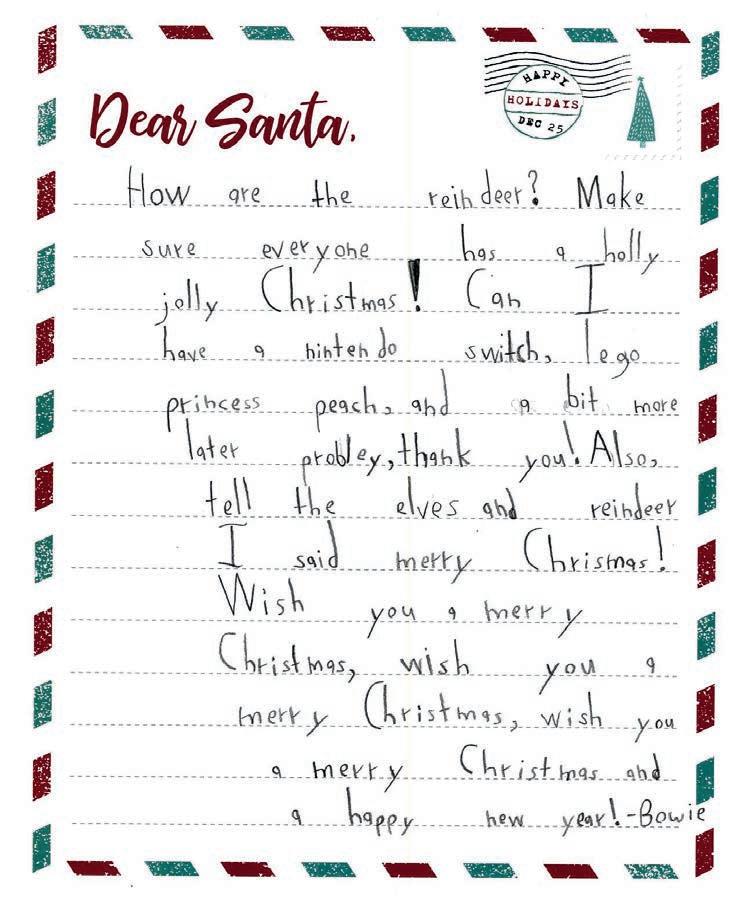 HAPPY
HOLIDAYS
DEC 25
Dear Santa,
How are the reindeer? Make
sure everyone has a holly
jolly Christmas! Can I
have a nintendo switch, lego
princess peach, and a bit more
later probley, thank you! Also,
tell the elves and reindeer
I said merry Christmas!
Wish you a merry
Christmas, wish you a
merry Christmas, wish you
a merry Christmas and
a happy new year! -Bowie